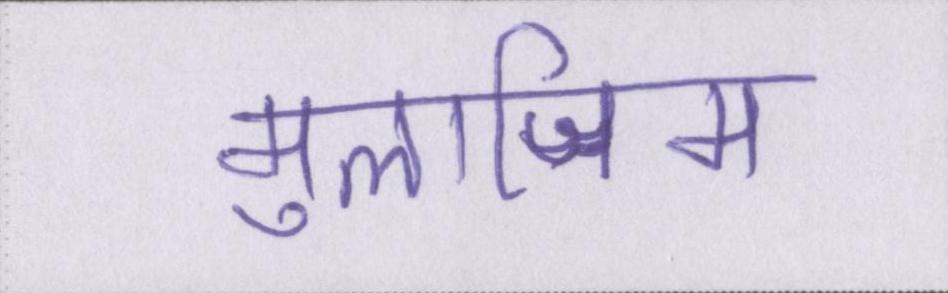 मुलाजिम